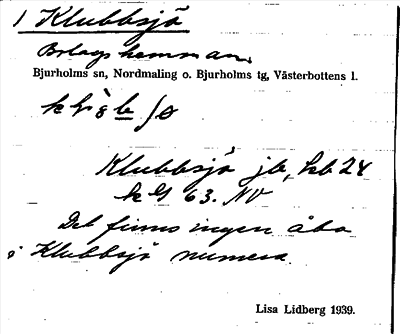 1 Klubbsjö
Bolagshemman.
Bjurholms sn, Nordmaling o. Bjurholms tg, Västerbottens l.
Klubbsjö jb, kb 24
63. NV
Det finns ingen åbo
i Klubbsjö numera.
Lisa Lidberg 1939.